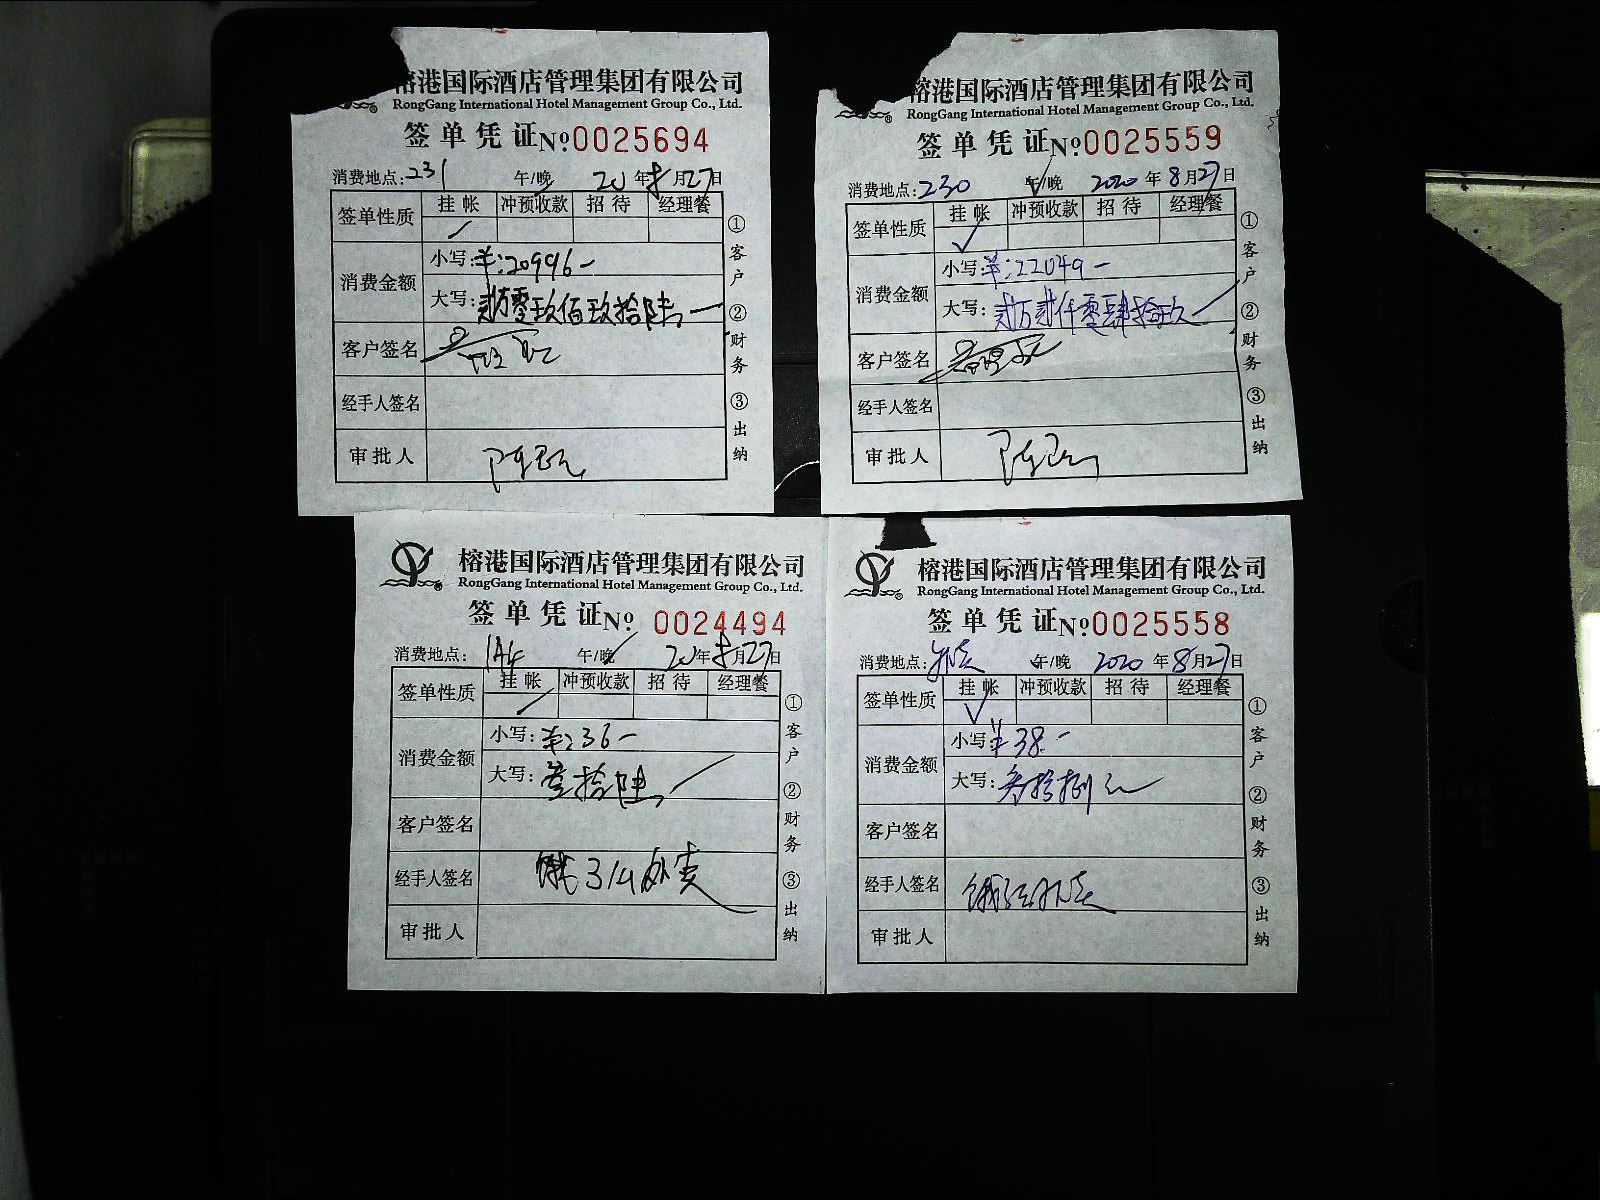 榕港国际酒店管理集团有限公司
RongGang International Hotel Management Group Co., Ltd.
签单凭证 № 0025694
消费地点: 231 午/晚 20 年 8 月 27 日
签单性质 挂帐 冲预收款 招待 经理餐
消费金额 小写: ¥:20996-
大写: 贰万零玖佰玖拾陆
客户签名
经手人签名
审批人
① 客户 ② 财务 ③ 出纳
榕港国际酒店管理集团有限公司
RongGang International Hotel Management Group Co., Ltd.
签单凭证 № 0025559
消费地点: 230 午/晚 2020 年 8 月 27 日
签单性质 挂帐 冲预收款 招待 经理餐
消费金额 小写: ¥:22049-
大写: 贰万贰仟零肆拾玖
客户签名
经手人签名
审批人
① 客户 ② 财务 ③ 出纳
榕港国际酒店管理集团有限公司
RongGang International Hotel Management Group Co., Ltd.
签单凭证 № 0024494
消费地点: 144 午/晚 20 年 8 月 27 日
签单性质 挂帐 冲预收款 招待 经理餐
消费金额 小写: ¥:36-
大写: 叁拾陆
客户签名
经手人签名 外卖
审批人
① 客户 ② 财务 ③ 出纳
榕港国际酒店管理集团有限公司
RongGang International Hotel Management Group Co., Ltd.
签单凭证 № 0025558
消费地点: 外卖 午/晚 2020 年 8 月 27 日
签单性质 挂帐 冲预收款 招待 经理餐
消费金额 小写: ¥38.-
大写: 叁拾捌元
客户签名
经手人签名 外卖
审批人
① 客户 ② 财务 ③ 出纳